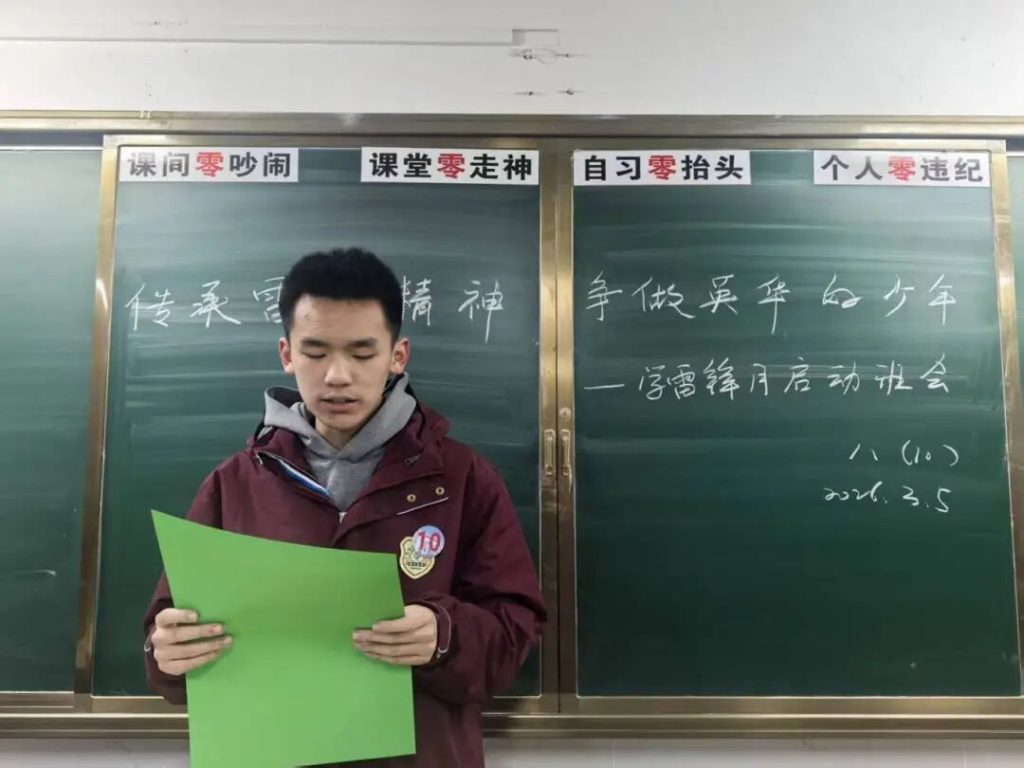 课间零吵闹 课堂零走神 自习零抬头 个人零违纪
传承雷 精神 争做英华好少年
—学雷锋月启动班会
八（10）
2026.3.5
10